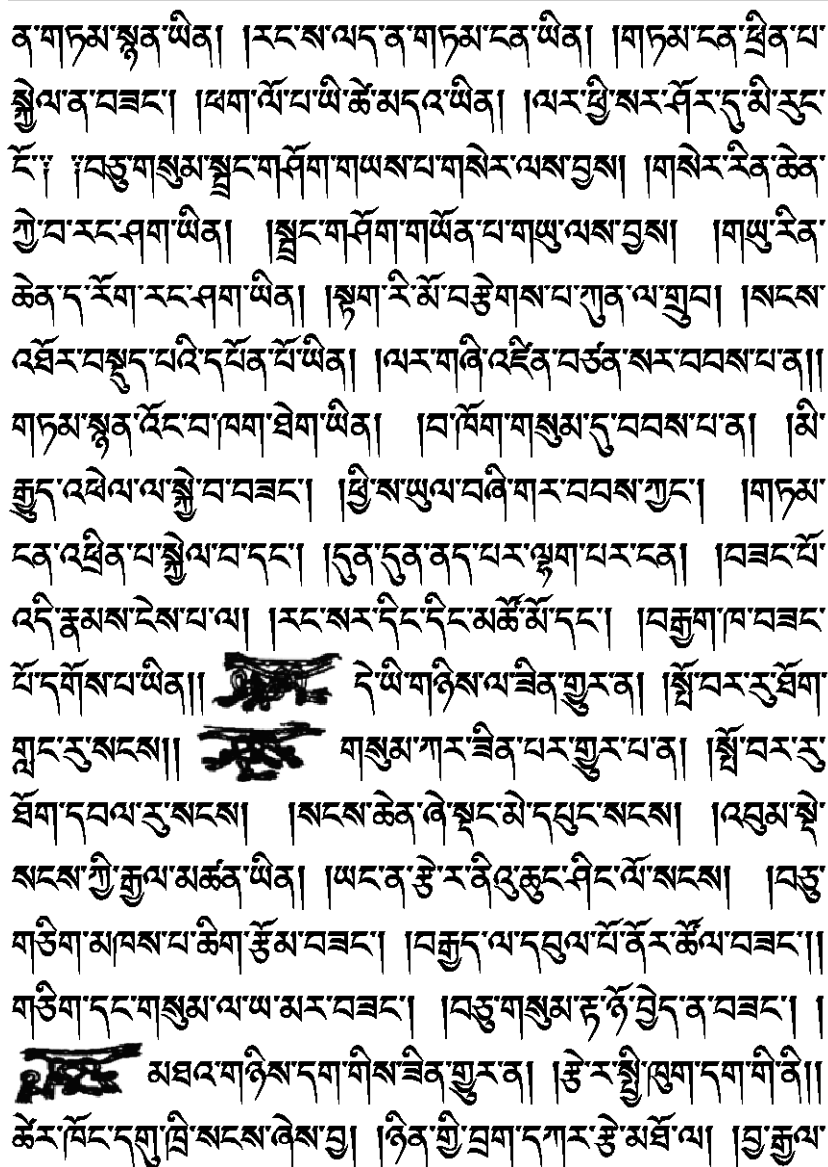 ན་གཏམ་སྙན་ཡིན། །རང་ས་ལད་ན་གཏམ་ངན་ཡིན། །གཏམ་ངན་ཕྲིན་པ་
སྐྱེལ་ན་བཟང་། །ཕག་ལོ་པ་ཡི་ཚེ་མདའ་ཡིན། །ལར་ཕྱི་སར་ཤོར་དུ་མི་རུང་
ངོ༌༑ ༑བཅུ་གསུམ་སྦྲང་གཤོག་གཡས་པ་གསེར་ལས་བྱས། །གསེར་རིན་ཆེན་
ཀྱེ་བ་རང་ཤག་ཡིན། །སྦྲང་གཤོག་གཡོན་པ་གཡུ་ལས་བྱས། །གཡུ་རིན་
ཆེན་ད་རོག་རང་ཤག་ཡིན། །སྟག་རི་མོ་བརྩེགས་པ་ཀུན་ལ་གྲུབ། །སངས་
འཐོར་བསྡུད་པའི་དཔོན་པོ་ཡིན། །ལར་གཞི་འཛིན་བཙན་སར་བབས་པ་ན།།
གཏམ་སྙན་འོང་བ་ཁག་ཐེག་ཡིན། །བ་ཁོག་གསུམ་དུ་བབས་པ་ན། །མི་
རྒྱུད་འཕེལ་ལ་སྐྱེ་བ་བཟང་། །ཕྱི་ས་ཡུལ་བཞི་གར་བབས་ཀྱང་། །གཏམ་
ངན་འཕྲིན་པ་སྐྱེལ་བ་དང་། །དུན་དུན་ནད་པར་ལྷག་པར་ངན། །བཟང་པོ་
འདི་རྣམས་ངེས་པ་ལ། །རང་སར་དིང་དིང་མཚོ་མོ་དང་། །བརྒྱག་ཁ་བཟང་
པོ་དགོས་པ་ཡིན།། དེ་ཡི་གཉིས་ལ་ཟིན་གྱུར་ན། །སྤོ་བར་རུ་ཐོག་
གླང་རུ་སངས།། གསུམ་ཀར་ཟིན་པར་གྱུར་པ་ན། །སྤོ་བར་རུ་
ཐོག་དབལ་རུ་སངས། །སངས་ཆེན་ཞེ་སྡང་མེ་དཔུང་སངས། །འབུམ་སྡེ་
སངས་ཀྱི་རྒྱལ་མཚན་ཡིན། །ཡང་ན་རྩེ་ར་ནེའུ་ཆུང་ཤིང་ལོ་སངས། །བཅུ་
གཅིག་མཁས་པ་ཆིག་རྩོམ་བཟང་། །བརྒྱད་ལ་དབུལ་པོ་ནོར་ཚོལ་བཟང་།།
གཅིག་དང་གསུམ་ལ་ཡ་མར་བཟང་། །བཅུ་གསུམ་རྟ་ཉོ་བྱེད་ན་བཟང་། །
མཐའ་གཉིས་དག་གིས་ཟིན་གྱུར་ན། །རྩེ་ར་སྤྱི་ཁུག་དག་གི་ནི།།
ཚེར་ཁོང་དགུ་ཁྲི་སངས་ཞེས་བྱ། །ཉིན་གྱི་བྲག་དཀར་རྩེ་མཐོ་ལ། །བྱ་རྒྱལ་